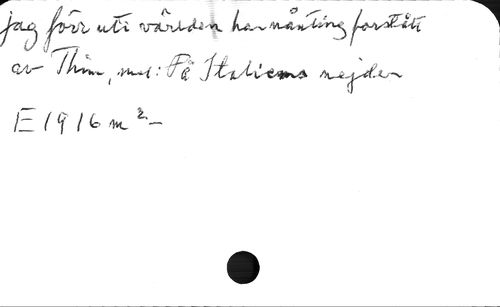 jag förr uti världen har nånting forstått
av Thim, mel: På Italiens nejder
E 1916 m²-